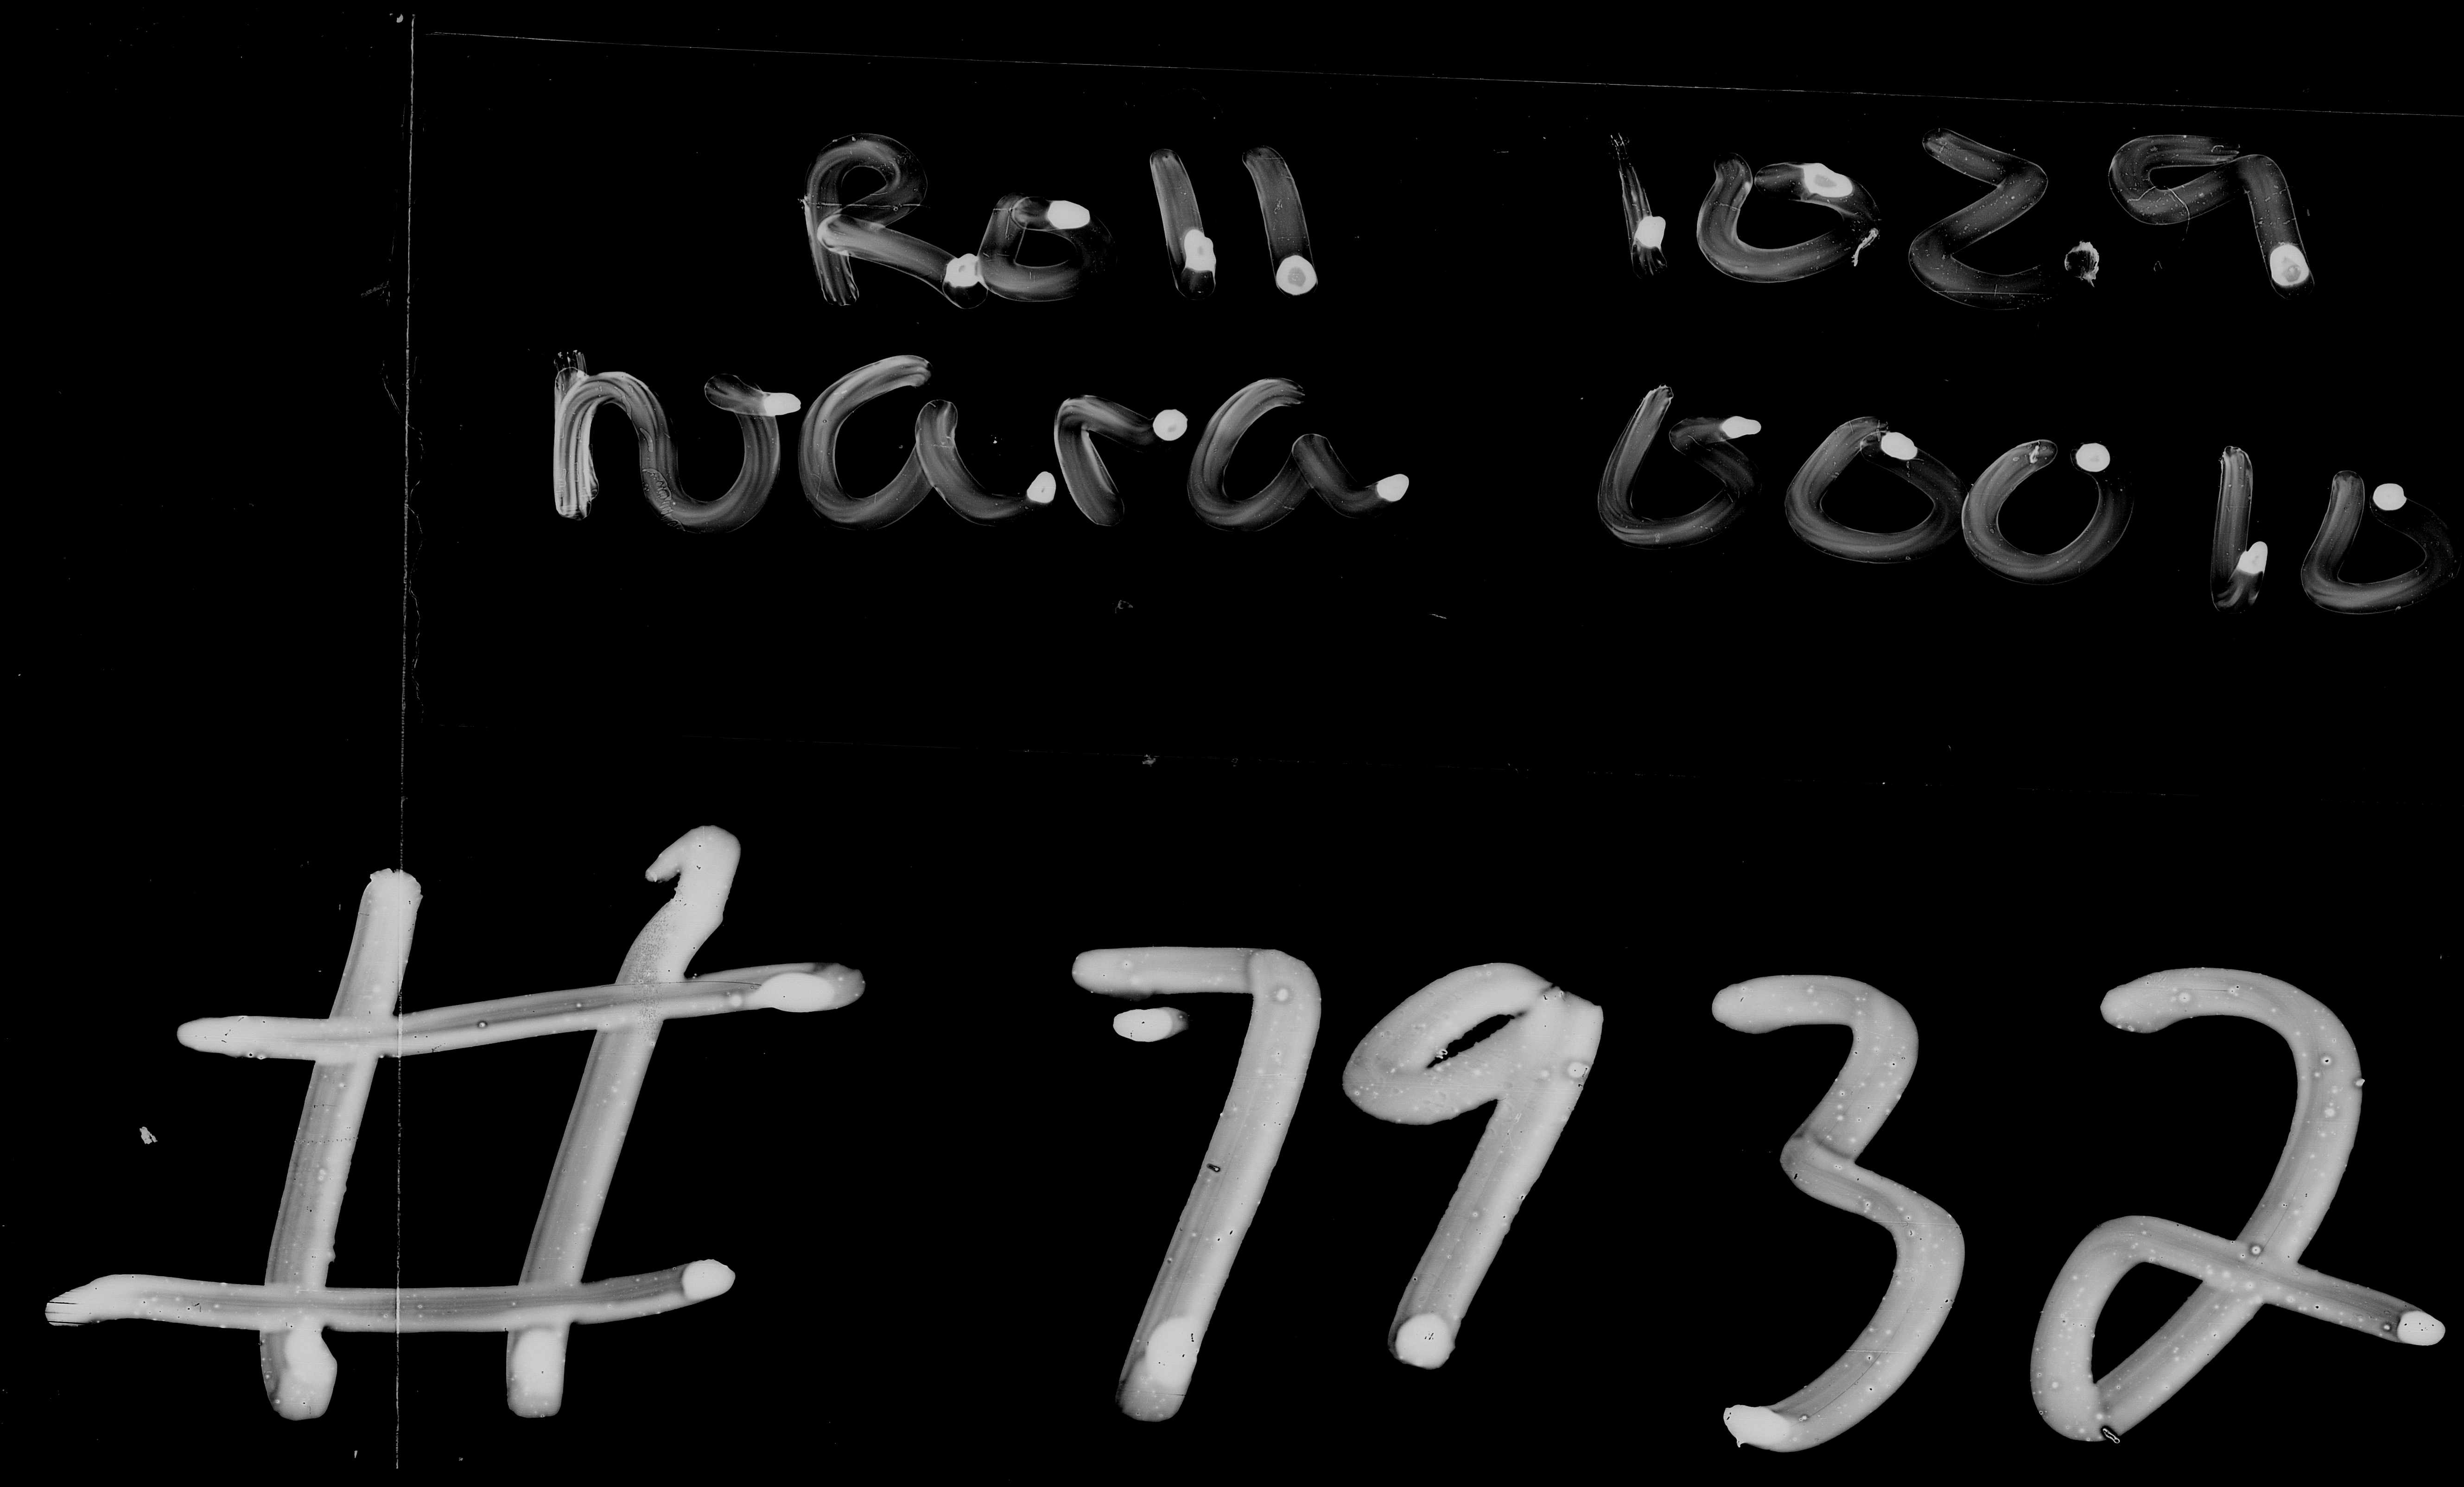 Roll 1029
nara 00010
# 7932